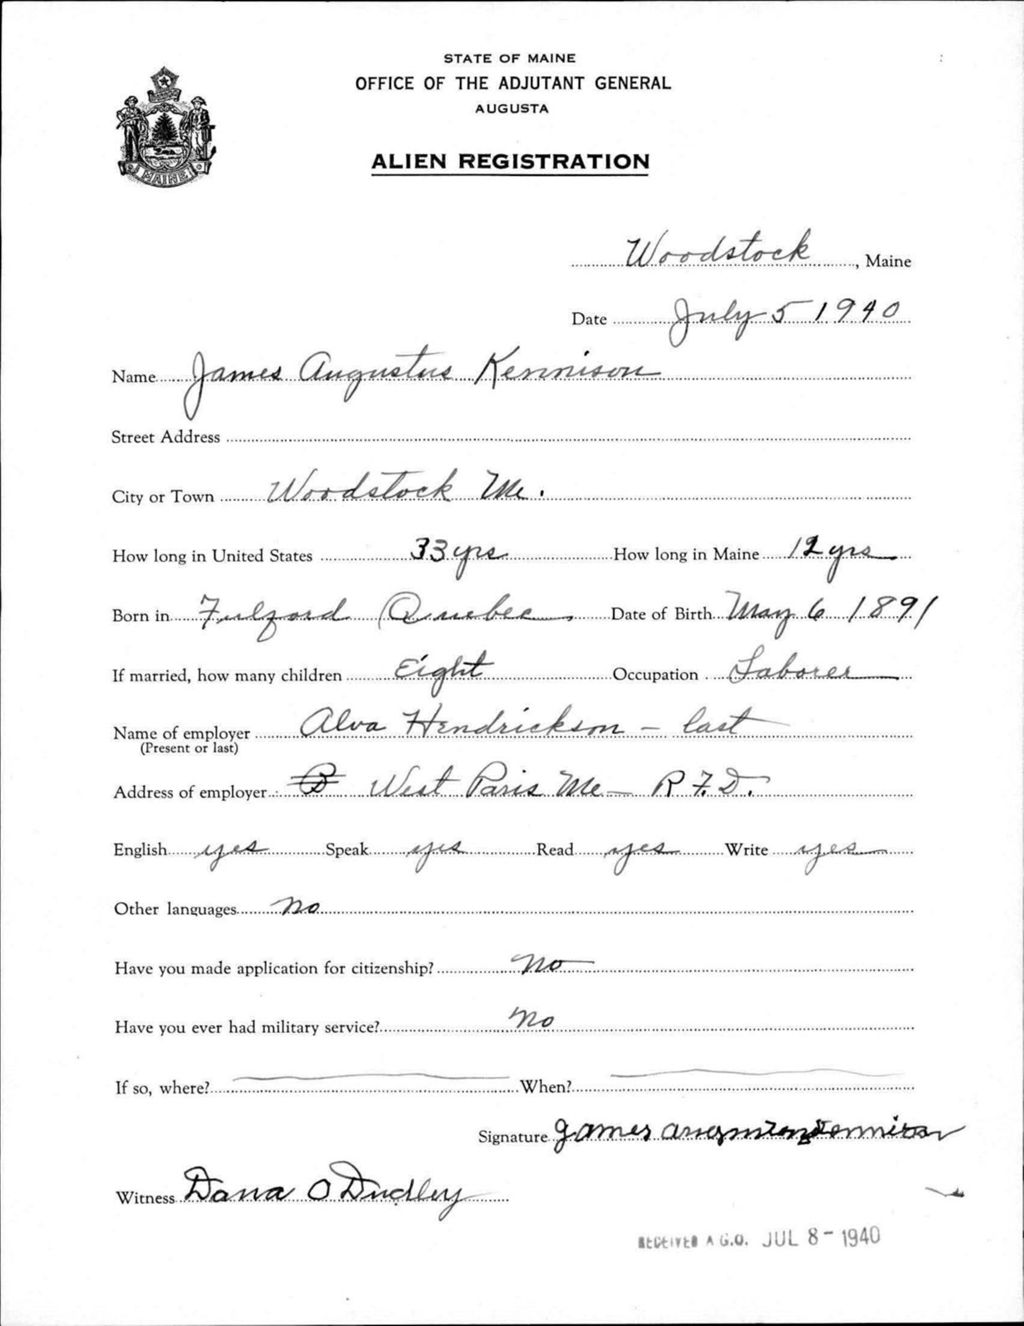 STATE OF MAINE
OFFICE OF THE ADJUTANT GENERAL
AUGUSTA
ALIEN REGISTRATION
MAINE
Woodstock, Maine
Date July 5 1940
Name James Augustus Kennison
Street Address
City or Town Woodstock Me.
How long in United States 33 yrs How long in Maine 12 yrs
Born in Fulford Quebec Date of Birth May 6 1891
If married, how many children Eight Occupation Laborer
Name of employer Alva Hendrickson – last
(Present or last)
Address of employer West Paris Me – R.F.D.
English yes Speak yes Read yes Write yes
Other languages no
Have you made application for citizenship? No
Have you ever had military service? No
If so, where? When?
Signature James Kennison
Witness Dana O Dudley
RECEIVED A.G.O. JUL 8 - 1940